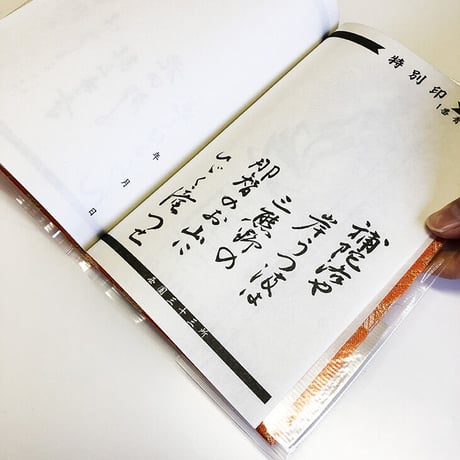 特別印
補陀洛や
岸うつ波は
三熊野の
那智のお山に
ひゞく滝つせ
西国三十三所
年 月 日